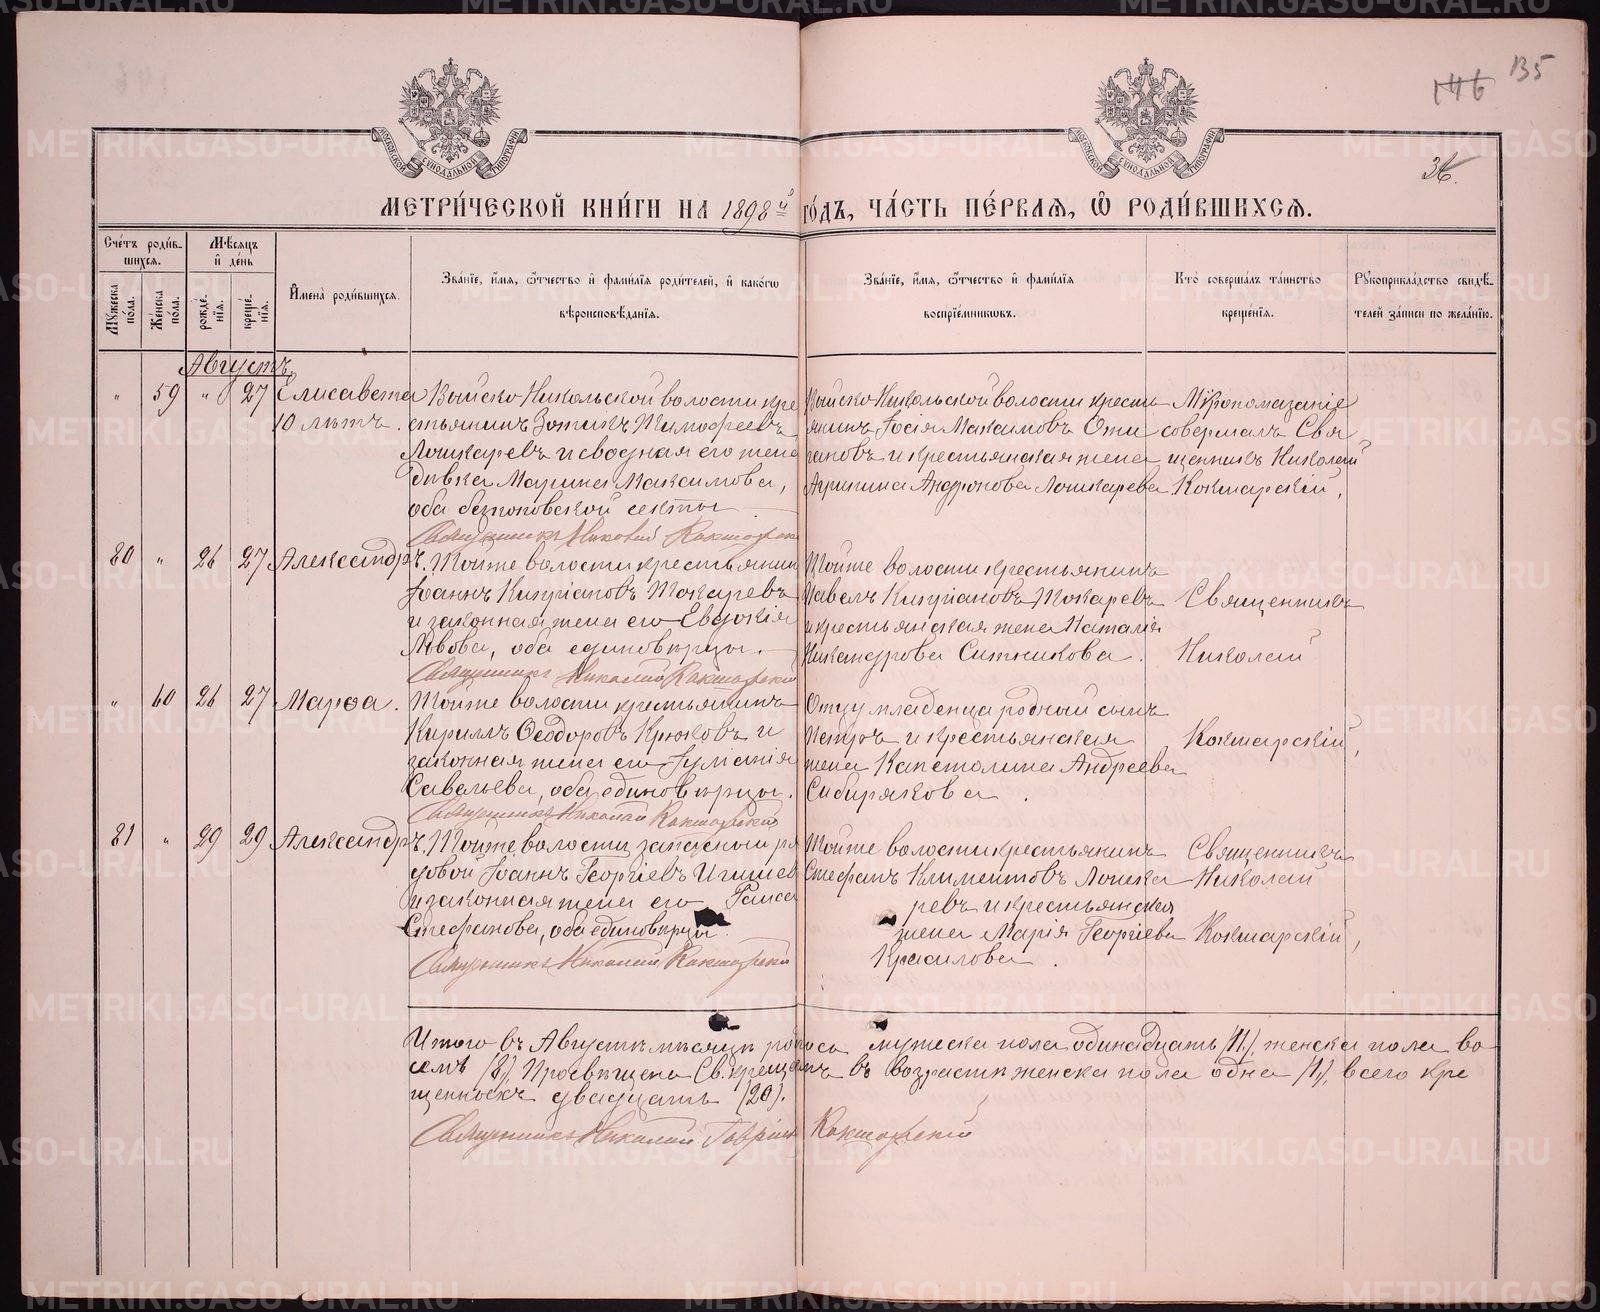 146 135
36.
МЕТРИ́ЧЕСКОЙ КНИ́ГИ НА 1898й ГО́ДЪ, ЧА́СТЬ ПЕ́РВАЯ, Ѽ РОДИ́ВШИХСЯ.
Сче́тъ роди́в-
шихся.
Мѣ́сяцъ
и҆ де́нь
Мꙋ́жеска
по́ла.
Же́нска
по́ла.
рожде́-
нїя.
креще́-
нїя.
И҆мена̀ роди́вшихся.
Зва́нїе, и҆́мя, ѻ҆́тчество и҆ фами́лїя роди́телей, и҆ како́гѡ
вѣроисповѣ́данїя.
Зва́нїе, и҆́мя, ѻ҆́тчество и҆ фами́лїя
воспрїе́мникѡвъ.
Кто̀ соверша́лъ та́инство
креще́нїя.
Рꙋкоприкла́дство свидѣ́-
телей за́писи по жела́нїю.
Августъ
" 59 " 27 Елисавета
10 лѣтъ.
Выйско Никольской волости кре
стьянинъ Зотикъ Тимофеевъ
Лошкаревъ и сводная его жена
дѣвка Марина Максимова,
оба безпоповской секты
Священникъ Николай Кокшарский
Выйско Никольской волости кресть
янинъ Іосія Максимовъ
и крестьянская жена
Агрипина Андронова Лошкарева
Мѵропомазаніе
совершалъ Свя
щенникъ Николай
Кокшарскій,
80 " 26 27 Александръ.
Тойже волости крестьянинъ
Іоаннъ Кипріановъ Токаревъ
и законная жена его Евдокія
Львова, оба единовѣрцы.
Священникъ Николай Кокшарский
Тойже волости крестьянинъ
Павелъ Кипріановъ Токаревъ
и крестьянская жена Наталія
Никандрова Ситникова.
Священникъ
Николай
" 60 26 27 Марѳа.
Тойже волости крестьянинъ
Кириллъ Ѳеодоровъ Крюковъ и
законная жена его Гуманія
Савельева, оба единовѣрцы.
Священникъ Николай Кокшарский
Отцу младенца родный сынъ
Петръ и крестьянская
жена Капетолина Андреева
Сибирякова.
Кокшарскій,
81 " 29 29 Александръ.
Тойже волости запасной ря
довой Іоаннъ Георгіевъ Игишев
и законная жена его Раиса
Стефанова, оба единовѣрцы.
Священникъ Николай Кокшарский
Тойже волости крестьянинъ
Стефанъ Климентовъ Лошка
ревъ и крестьянская
жена Марія Георгіева
Красилова.
Священникъ
Николай
Кокшарскій,
Итого въ Августѣ мѣсяцѣ родилось мужеска пола одинадцать /11/, женска пола во-
семь /8/, Просвѣщена Св. крещенiемъ въ возрастѣ женска пола одна /1/, всего кре
щенныхъ двадцать /20/.
Священникъ Николай Гавріил Кокшарский